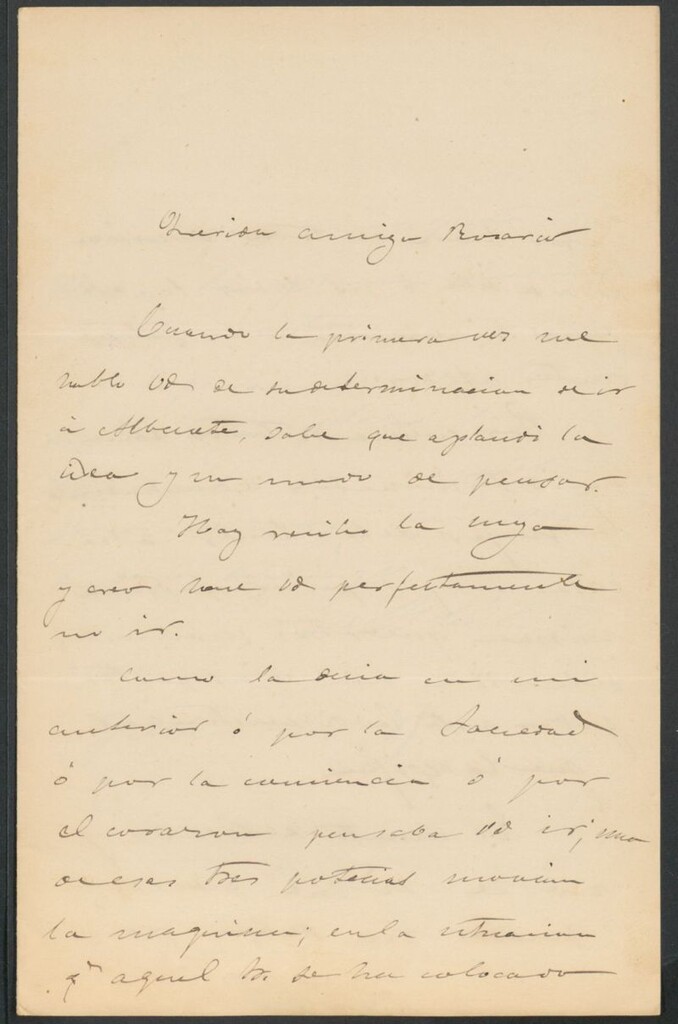 Querida amiga Rosario
Cuando la primera vez me
hablo Vd de su determinacion de ir
á Albacete, sabe que aplaudi la
idea y su modo de pensar.
Hoy recibo la suya
y creo hace Vd perfectamente
no ir.
Como la decia en mi
anterior ó por la Sociedad
ó por la conciencia ó por
el corazon pensaba Vd ir; una
de esas tres potencias movian
la maquina; en la situacion
qe aquel Sr. se ha colocado